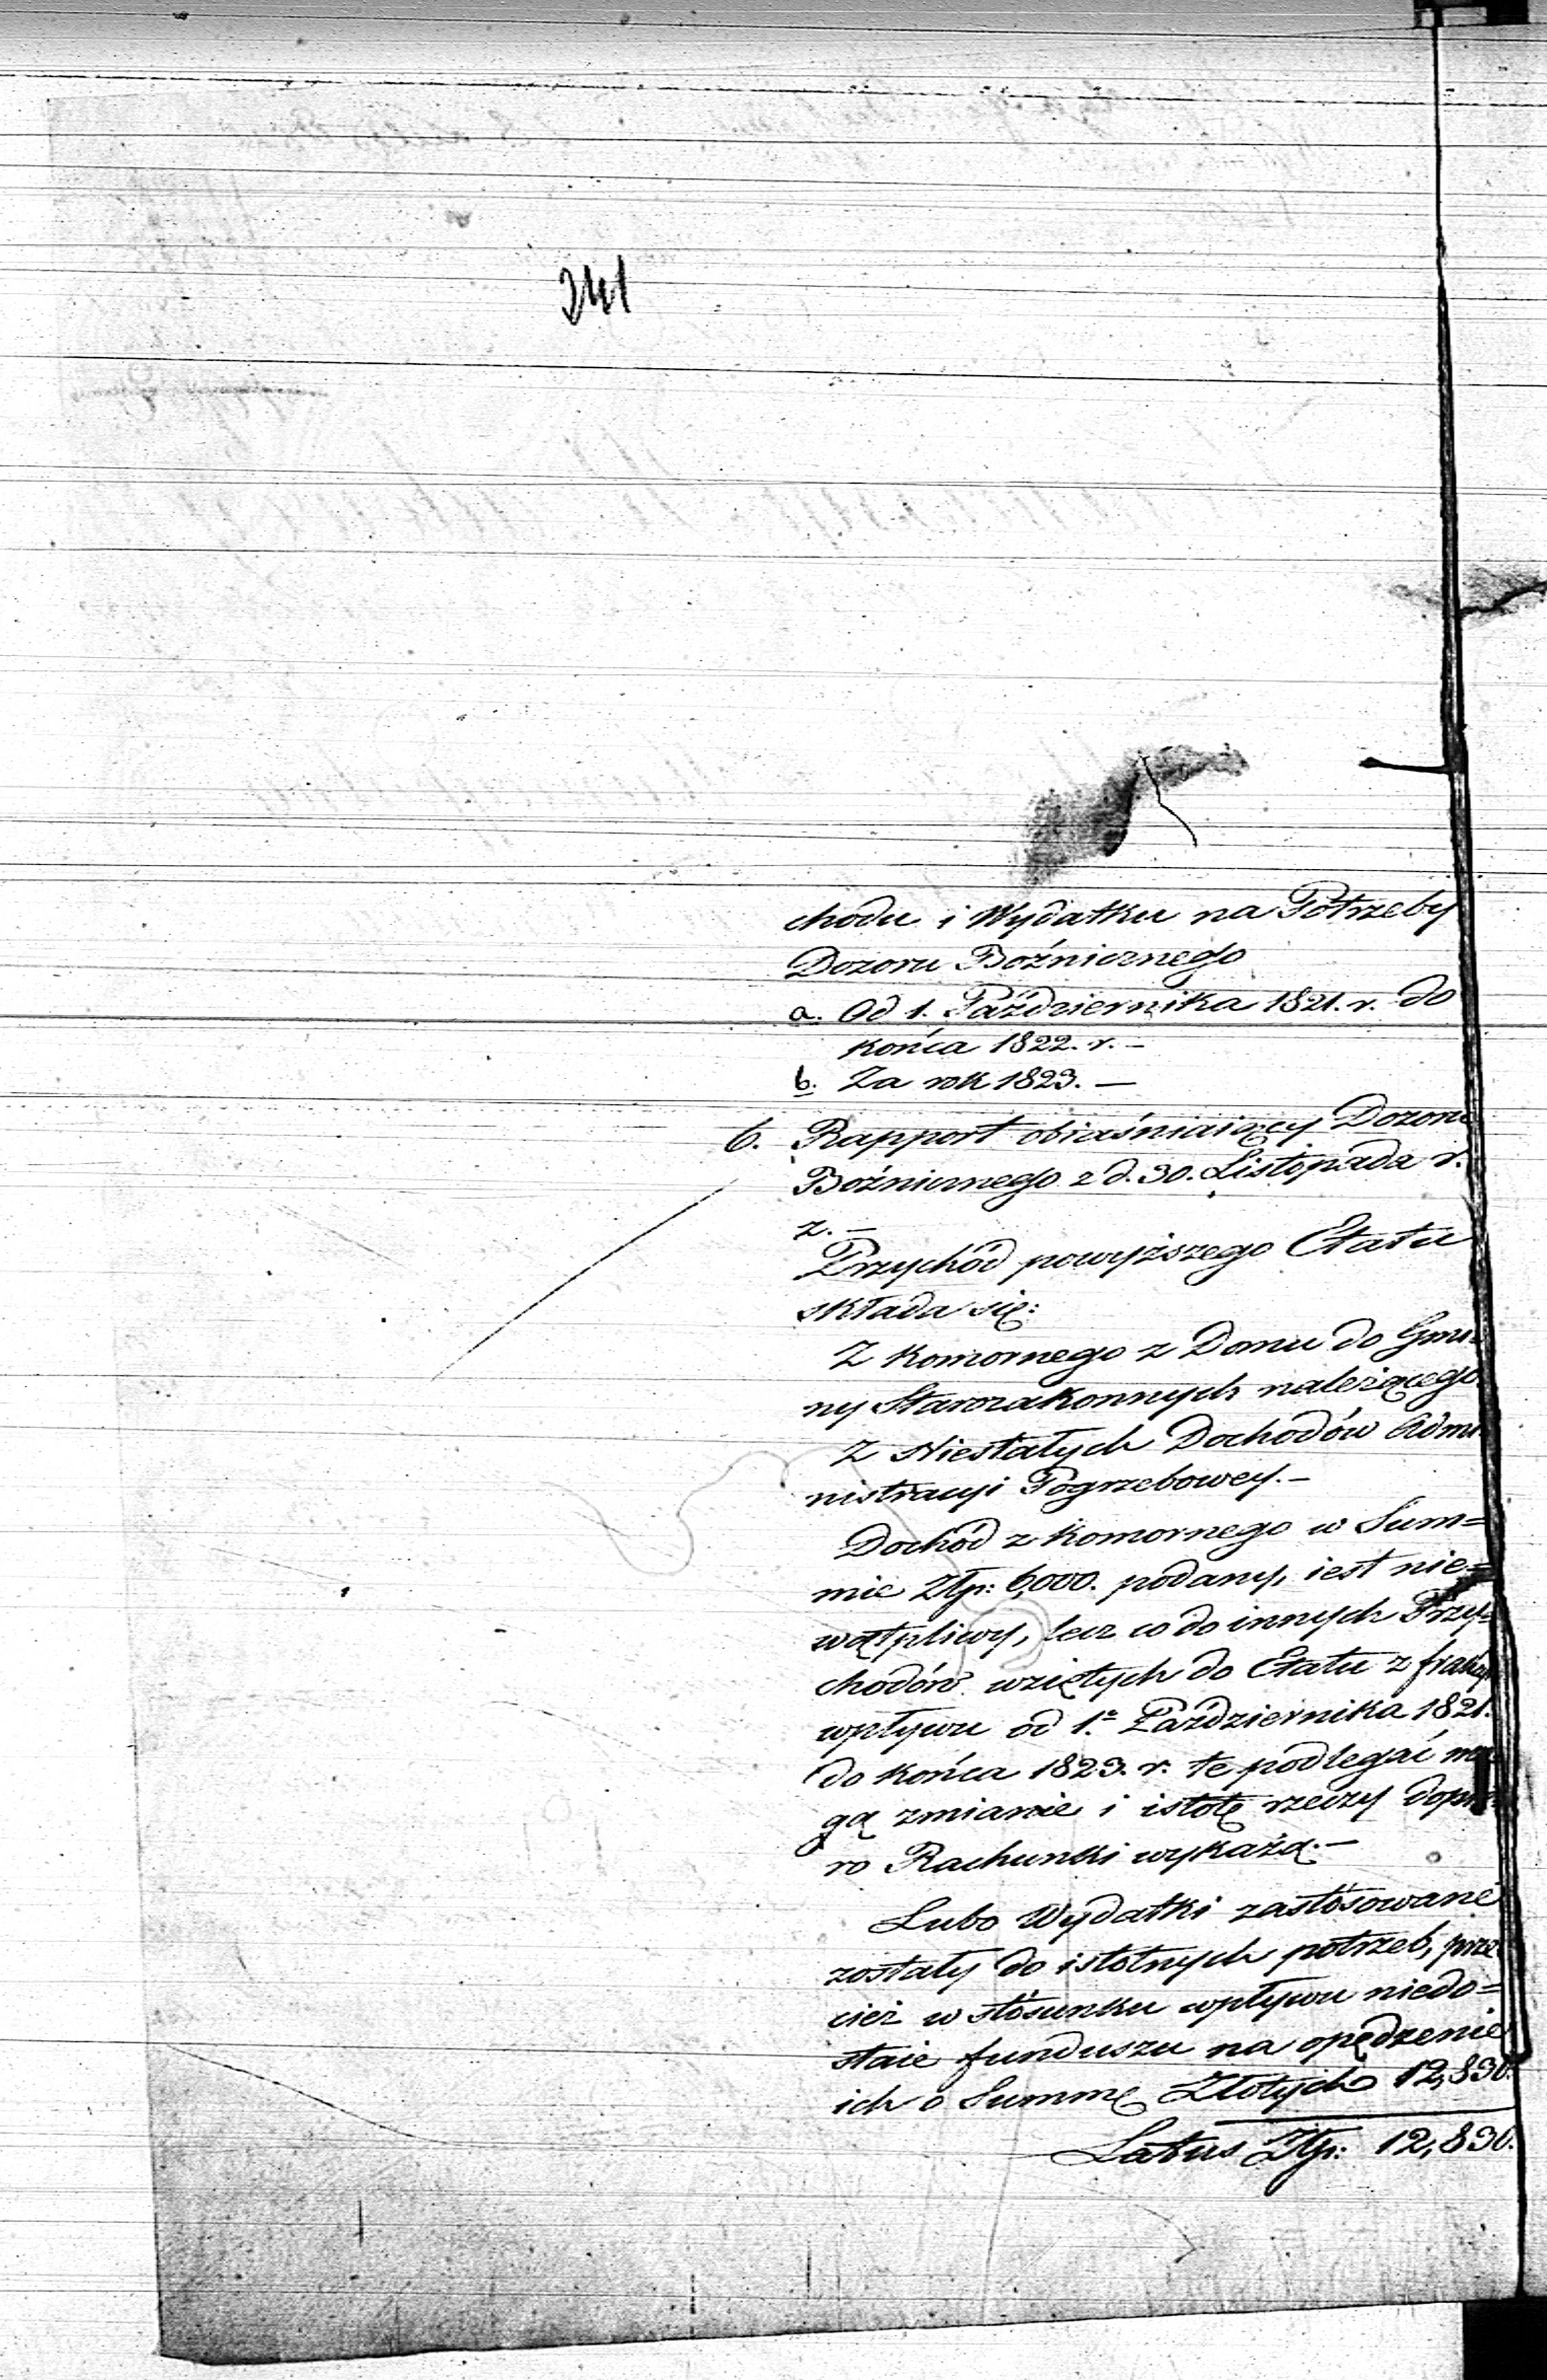 241
chodu i Wydatku na Potrzeby
Dozoru Boźnicznego
a. Od 1. Października 1821. r. do
końca 1822. r. –
b. Za rok 1823. –
6. Rapport obiaśniaiący Dozoru
Boźnicznego z d. 30. Listopada r.
z. –
Przychód powyższego Etatu
składa się:
Z Komornego z Domu do Gmi-
ny Starozakonnych należącego
Z Niestałych Dochodów Admi
nistracyi Pogrzebowey. –
Dochód z Komornego w Sum=
mie Złp: 6,000. podany, iest nie=
wątpliwy, lecz co do innych Przy=
chodów wziętych do Etatu z frakcyi
wpływu od 1. Października 1821.
do końca 1823. r. te podlegać mo
gą zmianie i istotę rzeczy dopie
ro Rachunki wykażą. –
Lubo Wydatki zastósowane
zostały do istotnych potrzeb, prze
cież w stósunku wpływu niedo=
staie funduszu na opędzenie
ich o Summę Złotych 12,830.
Latus Złp: 12,830.